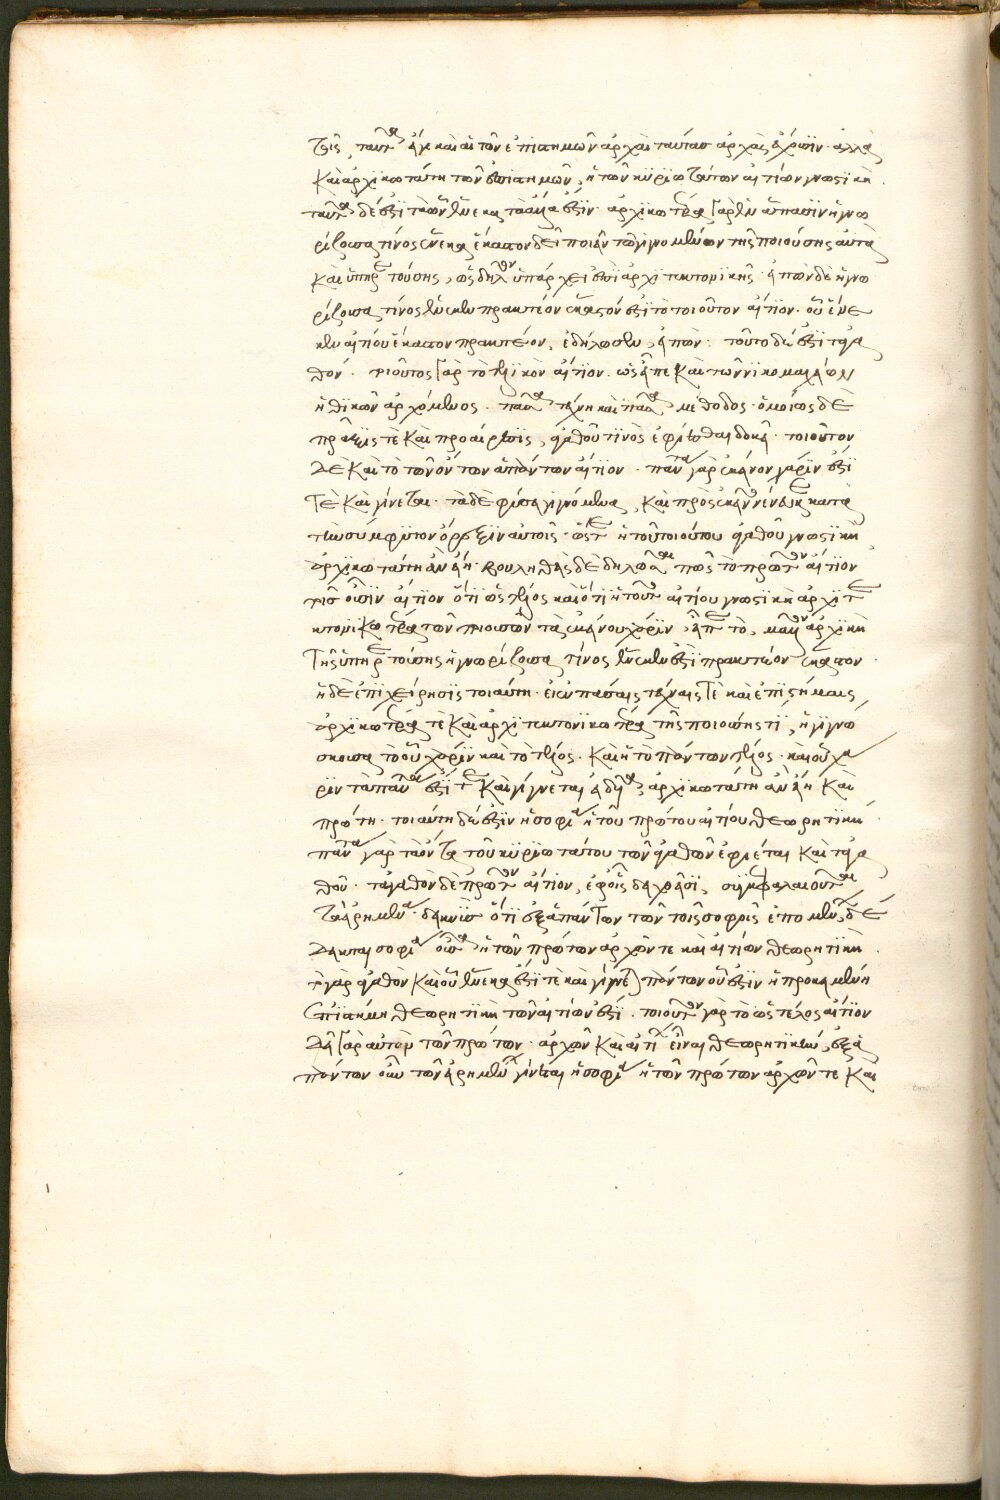 τις, ταύτας εἶναι καὶ αἳ τῶν ἐπιστημῶν ἀρχαὶ ταύτας ἀρχὰς ἔχουσιν. ἀλλὰ
Καὶ ἀρχικωτάτη τῶν ἐπιστημῶν, ἡ τῶν κυριωτάτων αἰτίων γνωστικὴ.
ταῦτα δέ ἐστι τὰ ὧν ἕνεκα τὰ ἄλλα ἐστίν. ἀρχικωτέρα γὰρ ἐν ἅπασιν ἡ γνω
ρίζουσα τίνος ἕνεκα ἕκαστον δεῖ ποιεῖν τῶν γινομένων τῆς ποιούσης αὐτὰ
Καὶ ὑπηρετούσης, ὡς δῆλον ὑπάρχει ἐπὶ ἀρχιτεκτονικῆς. εἰπὼν δὲ ἡ γνω
ρίζουσα τίνος ἕνεκεν πρακτέον ἕκαστόν ἐστι τὸ τοιοῦτον αἴτιον. οὗ ἕνε
κεν αἰτίου ἕκαστον πρακτέον, ἐδήλωσεν, εἰπὼν. τοῦτο δ' ἐστὶ τἀγα
θόν. τοιοῦτος γὰρ τὸ τελικὸν αἴτιον. ὡς εἶπε Καὶ τῶν νικομαχείων
ἠθικῶν ἀρχόμενος. πᾶσα τέχνη καὶ πᾶσα μέθοδος. ὁμοίως δὲ
πράξις τε Καὶ προαίρεσις, ἀγαθοῦ τινὸς ἐφίεσθαι δοκεῖ. τοιοῦτον
δὲ Καὶ τὸ τῶν ὄντων ἁπάντων αἴτιον. πάντα γὰρ ἐκείνου χάριν ἐστί
τὲ Καὶ γίνεται. τὰ δὲ φύσει γιγνόμενα, Καὶ πρὸς ἐκεῖνο νένευκε κατὰ
τὴν σύμφυτον ὄρεξιν αὐτοῖς. ὥστε ἡ τοῦ τοιούτου ἀγαθοῦ γνωστικὴ
ἀρχικωτάτη ἂν εἴη. βουληθεὶς δὲ δηλῶσαι πῶς τὸ πρῶτον αἴτιον
τισ οὖσιν αἴτιον ὅτι ὡς τέλος καὶ ὅτι ἡ τούτου αἰτίου γνωστικὴ ἀρχιτε
κτονικωτέρα τῶν ποιουσῶν τὰ ἐκείνου χάριν, εἶπε τὸ, μᾶλλον ἀρχικὴ
Τῆς ὑπηρετούσης ἡ γνωρίζουσα τίνος ἕνεκεν ἐστὶ πρακτέον ἕκαστον
ἡ δὲ ἐπιχείρησις τοιαύτη. εἰ ἐν πάσαις τέχναις τὲ καὶ ἐπιστήμαις
ἀρχικωτέρα τὲ Καὶ ἀρχιτεκτονικωτέρα τῆς ποιούσης τί, ἡ γιγνώ
σκουσα τὸ οὗ χάριν καὶ τὸ τέλος. Καὶ ἡ τὸ πάντων τέλος. καὶ οὗ χά
ριν τὰ πάντα ἐστί τε Καὶ γίγνεται εἰδυῖα, ἀρχικωτάτη ἂν εἴη Καὶ
πρώτη. τοιαύτη δ' ἐστὶν ἡ σοφία ἡ τοῦ πρώτου αἰτίου θεωρητικὴ.
πάντα γὰρ τὰ ὄντα τοῦ κυριωτάτου τῶν ἀγαθῶν ἐφίεται Καὶ τἀγα
θοῦ. τἀγαθὸν δὲ πρῶτον αἴτιον, ἐφ' οἷς δειχθεῖσι, συγκεφαλαιοῦται
τὰ εἰρημένα. δεικνὺς ὅτι ἐξ ἁπάντων τῶν τοῖς σοφοῖς ἑπομένων δέ
δεικται σοφία οὖσα ἡ τῶν πρώτων ἀρχῶν τε καὶ αἰτίων θεωρητικὴ.
τὸ γὰρ ἀγαθὸν Καὶ οὗ ἕνεκα ἐστί τε καὶ γίγνεται πάντων οὗ ἐστιν ἡ προκειμένη
ἐπιστήμη θεωρητικὴ τῶν αἰτίων ἐστί. τοιοῦτον γὰρ τὸ ὡς τέλος αἴτιον
δεῖ γὰρ αὐτὴν τῶν πρώτων ἀρχῶν Καὶ αἰτίων εἶναι θεωρητικὴν, ἐξ ἁ
πάντων οὖν τῶν εἰρημένων γίνεται ἡ σοφία ἡ τῶν πρώτων ἀρχῶν τε Καὶ